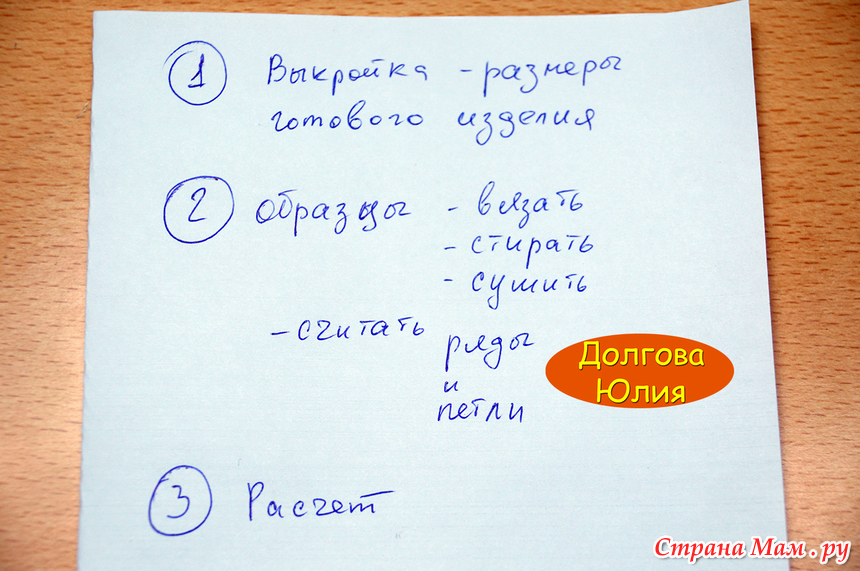 1 Выкройка - размеры
готового изделия
2 Образцы - вязать
- стирать
- сушить
- считать ряды
и
петли
Долгова
Юлия
3 Расчет
Страна Мам.ру